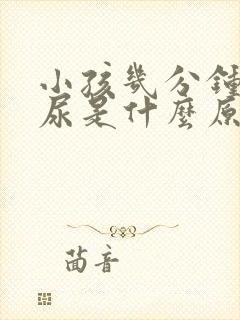 小孩幾分鐘
尿是什麼原
茵音